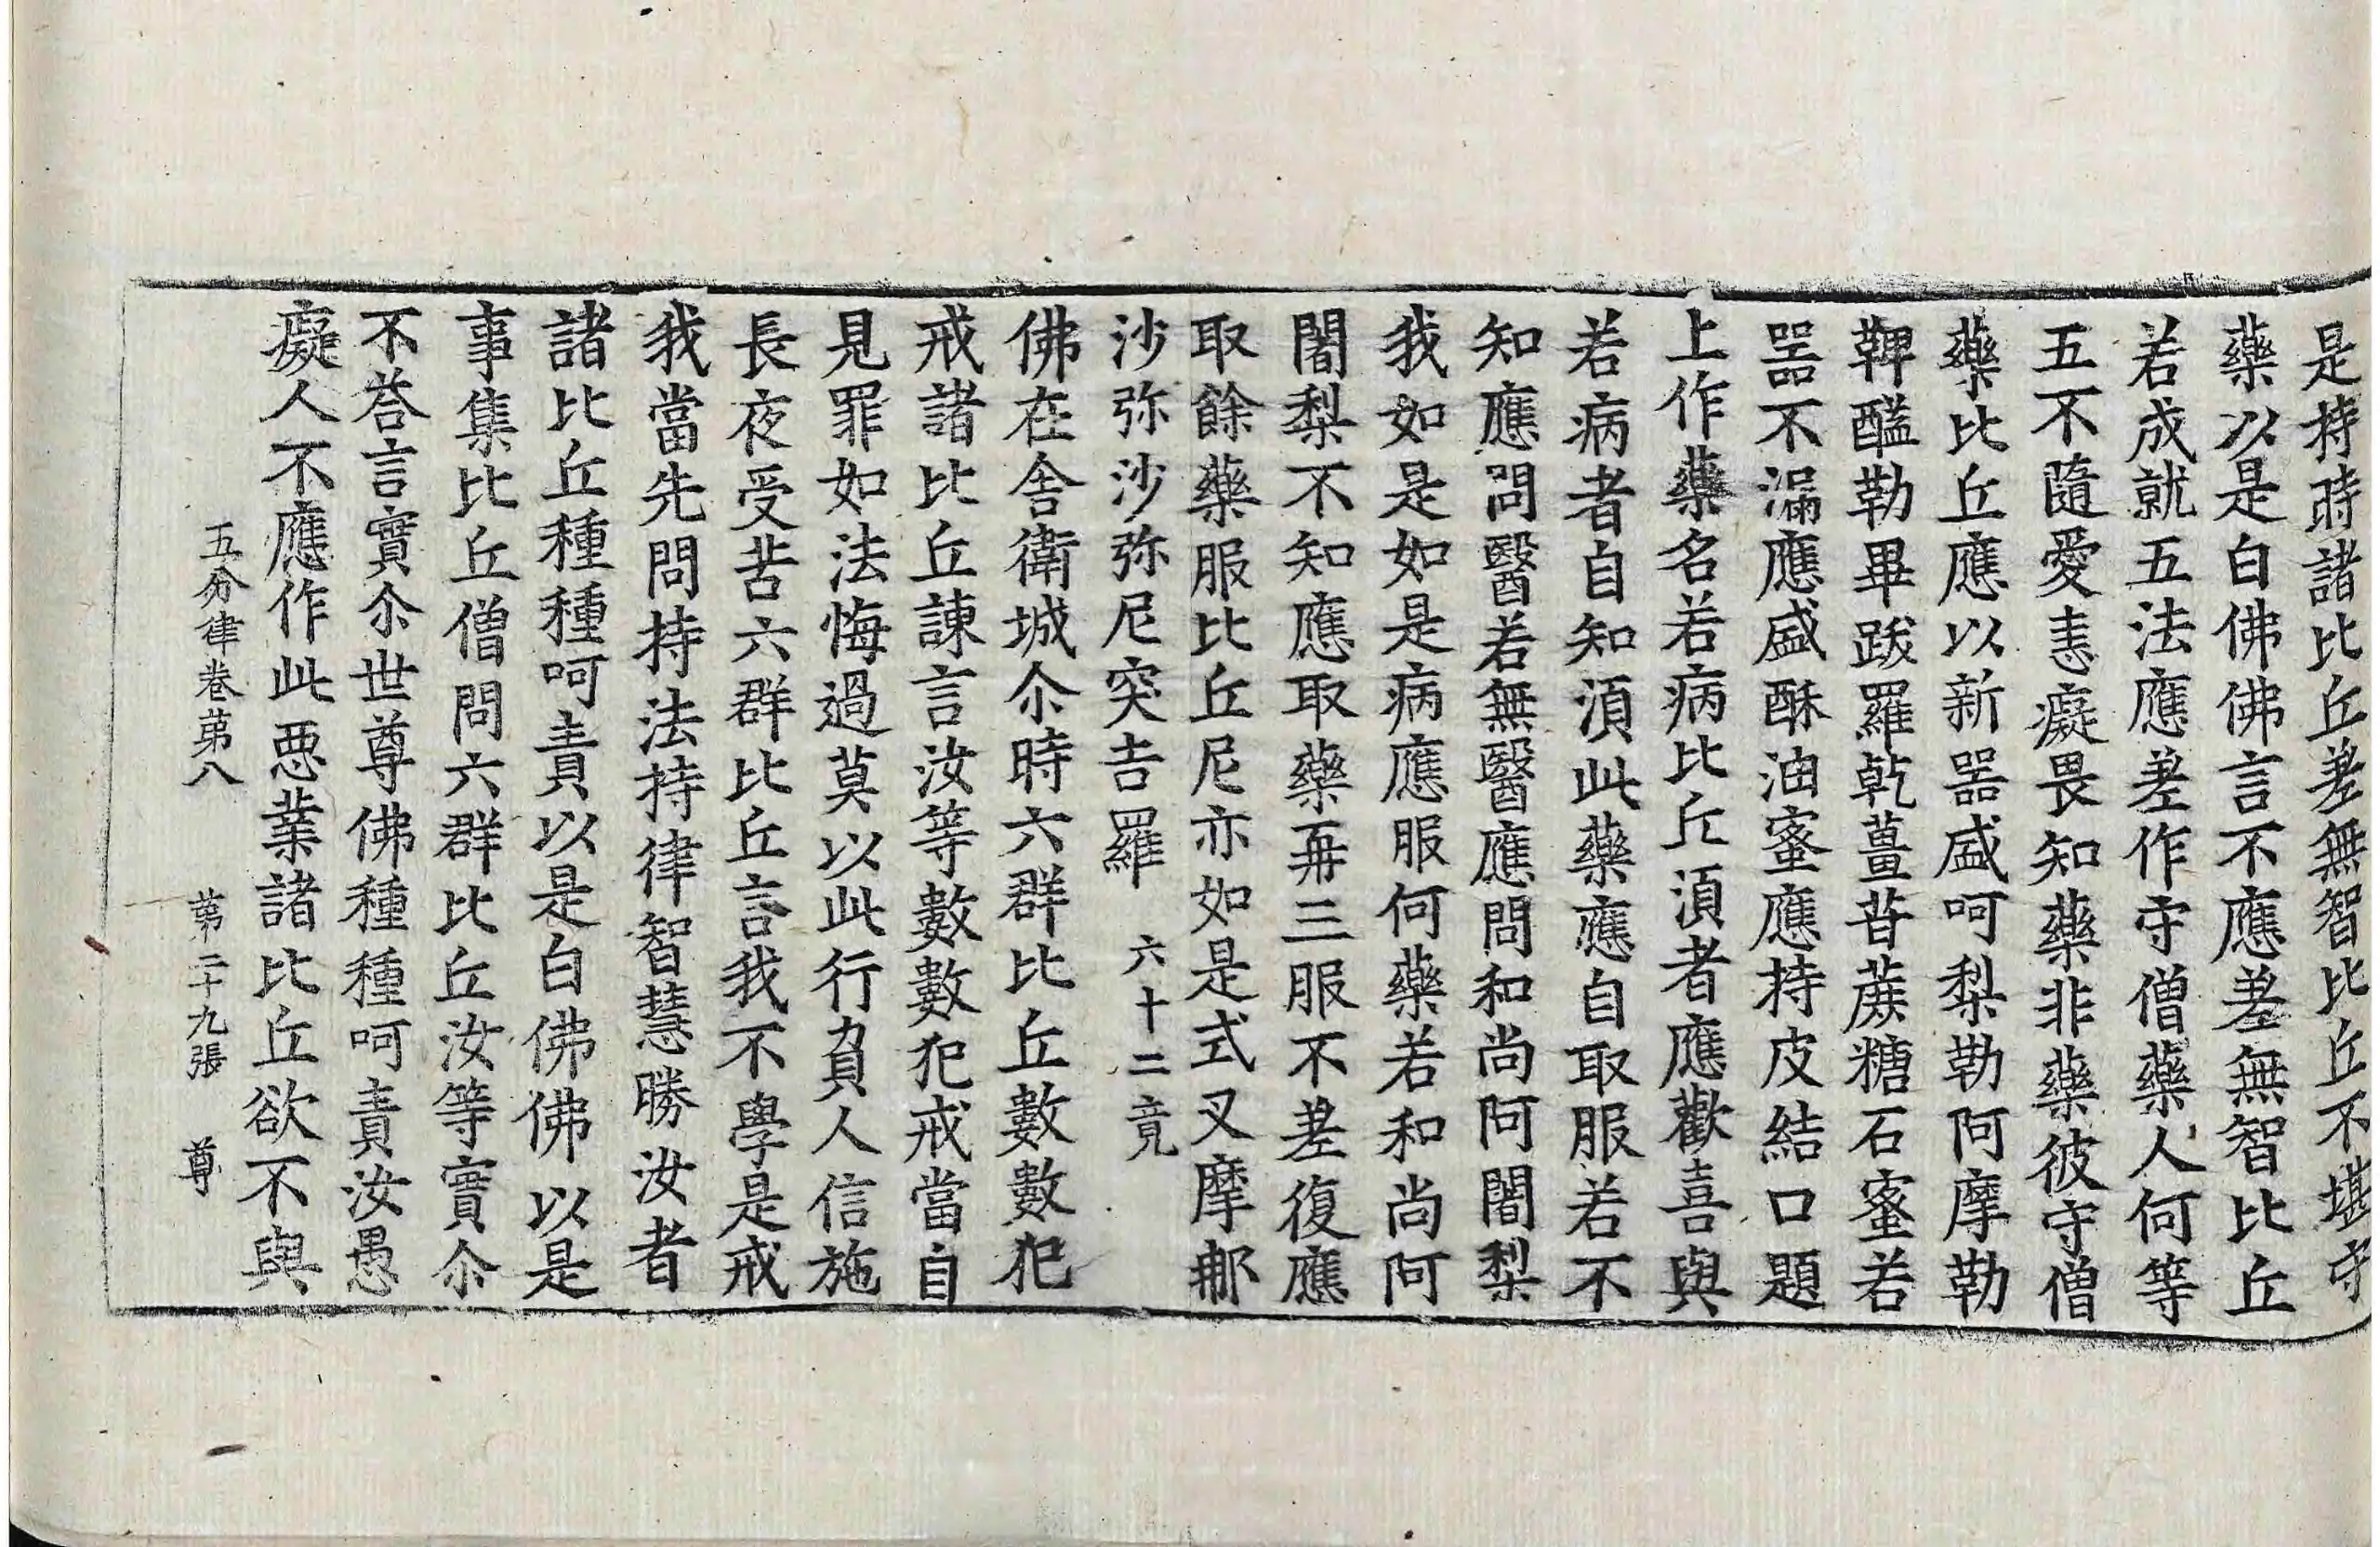 是持時諸比丘差無智比丘不堪守
藥以是白佛佛言不應差無智比丘
若成就五法應差作守僧藥人何等
五不隨愛恚癡畏知藥非藥彼守僧
藥比丘應以新器盛呵梨勒阿摩勒
鞞醯勒畢跋羅乾薑甘蔗糖石蜜若
器不漏應盛酥油蜜應持皮結口題
上作藥名若病比丘湏者應歡喜與
若病者自知湏此藥應自取服若不
知應問醫若無醫應問和尚阿闍梨
我如是如是病應服何藥若和尚阿
闍梨不知應取藥再三服不差復應
取餘藥服比丘尼亦如是式叉摩那
沙弥沙弥尼突吉羅 六十二竟
佛在舍衛城尒時六群比丘數數犯
戒諸比丘諫言汝等數數犯戒當自
見罪如法悔過莫以此行負人信施
長夜受苦六群比丘言我不學是戒
我當先問持法持律智慧勝汝者
諸比丘種種呵責以是白佛佛以是
事集比丘僧問六群比丘汝等實尒
不荅言實尒世尊佛種種呵責汝愚
癡人不應作此惡業諸比丘欲不與
五分律卷第八 第二十九張 尊